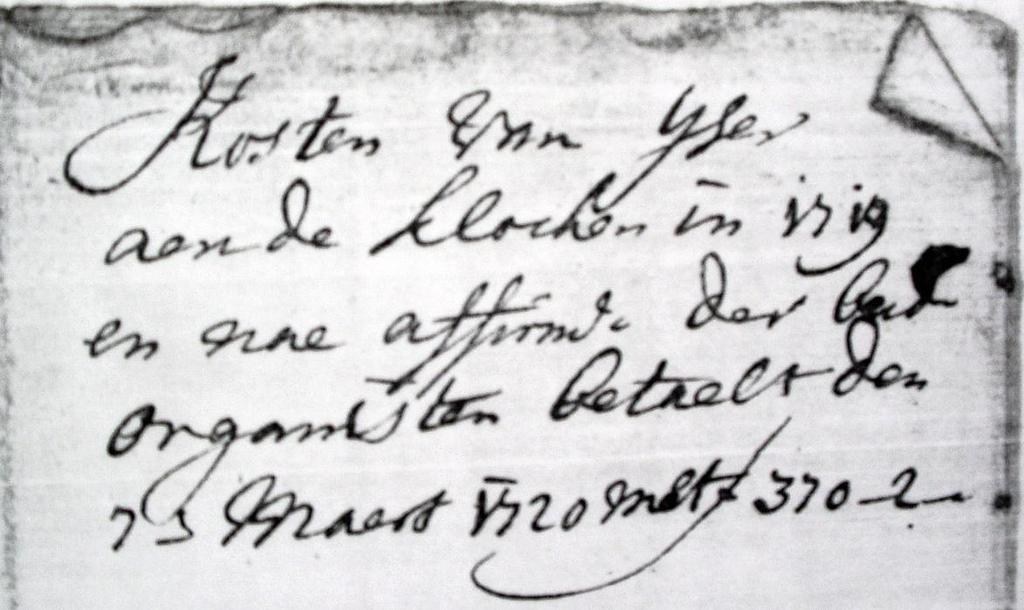 Kosten van yser
aen de klocken in 1719
en nae affirmde der
organisten betaelt den
Maert 1720 met f 370-2-